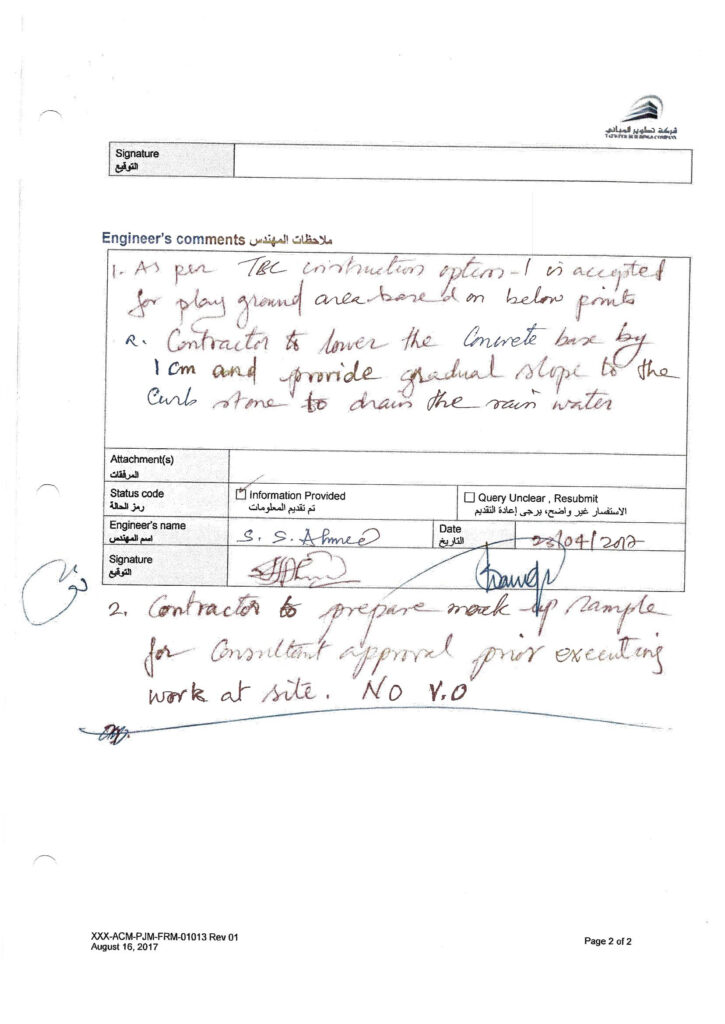 شركة تطوير المباني
TATWEER BUILDINGS COMPANY
Signature
التوقيع
Engineer's comments ملاحظات المهندس
1. As per TBC instruction option-1 is accepted
for play ground area based on below points
Contractor to lower the Concrete base by
1 cm and provide gradual slope to the
Curb stone to drain the rain water
Attachment(s)
المرفقات
Status code
رمز الحالة
Information Provided
تم تقديم المعلومات
Query Unclear , Resubmit
الاستفسار غير واضح، يرجى إعادة التقديم
Engineer's name
اسم المهندس
S. S. Ahmed
Date
التاريخ
23/04/2017
Signature
التوقيع
2. Contractor to prepare mock up sample
for Consultant approval prior executing
work at site. NO V.O
XXX-ACM-PJM-FRM-01013 Rev 01
August 16, 2017
Page 2 of 2